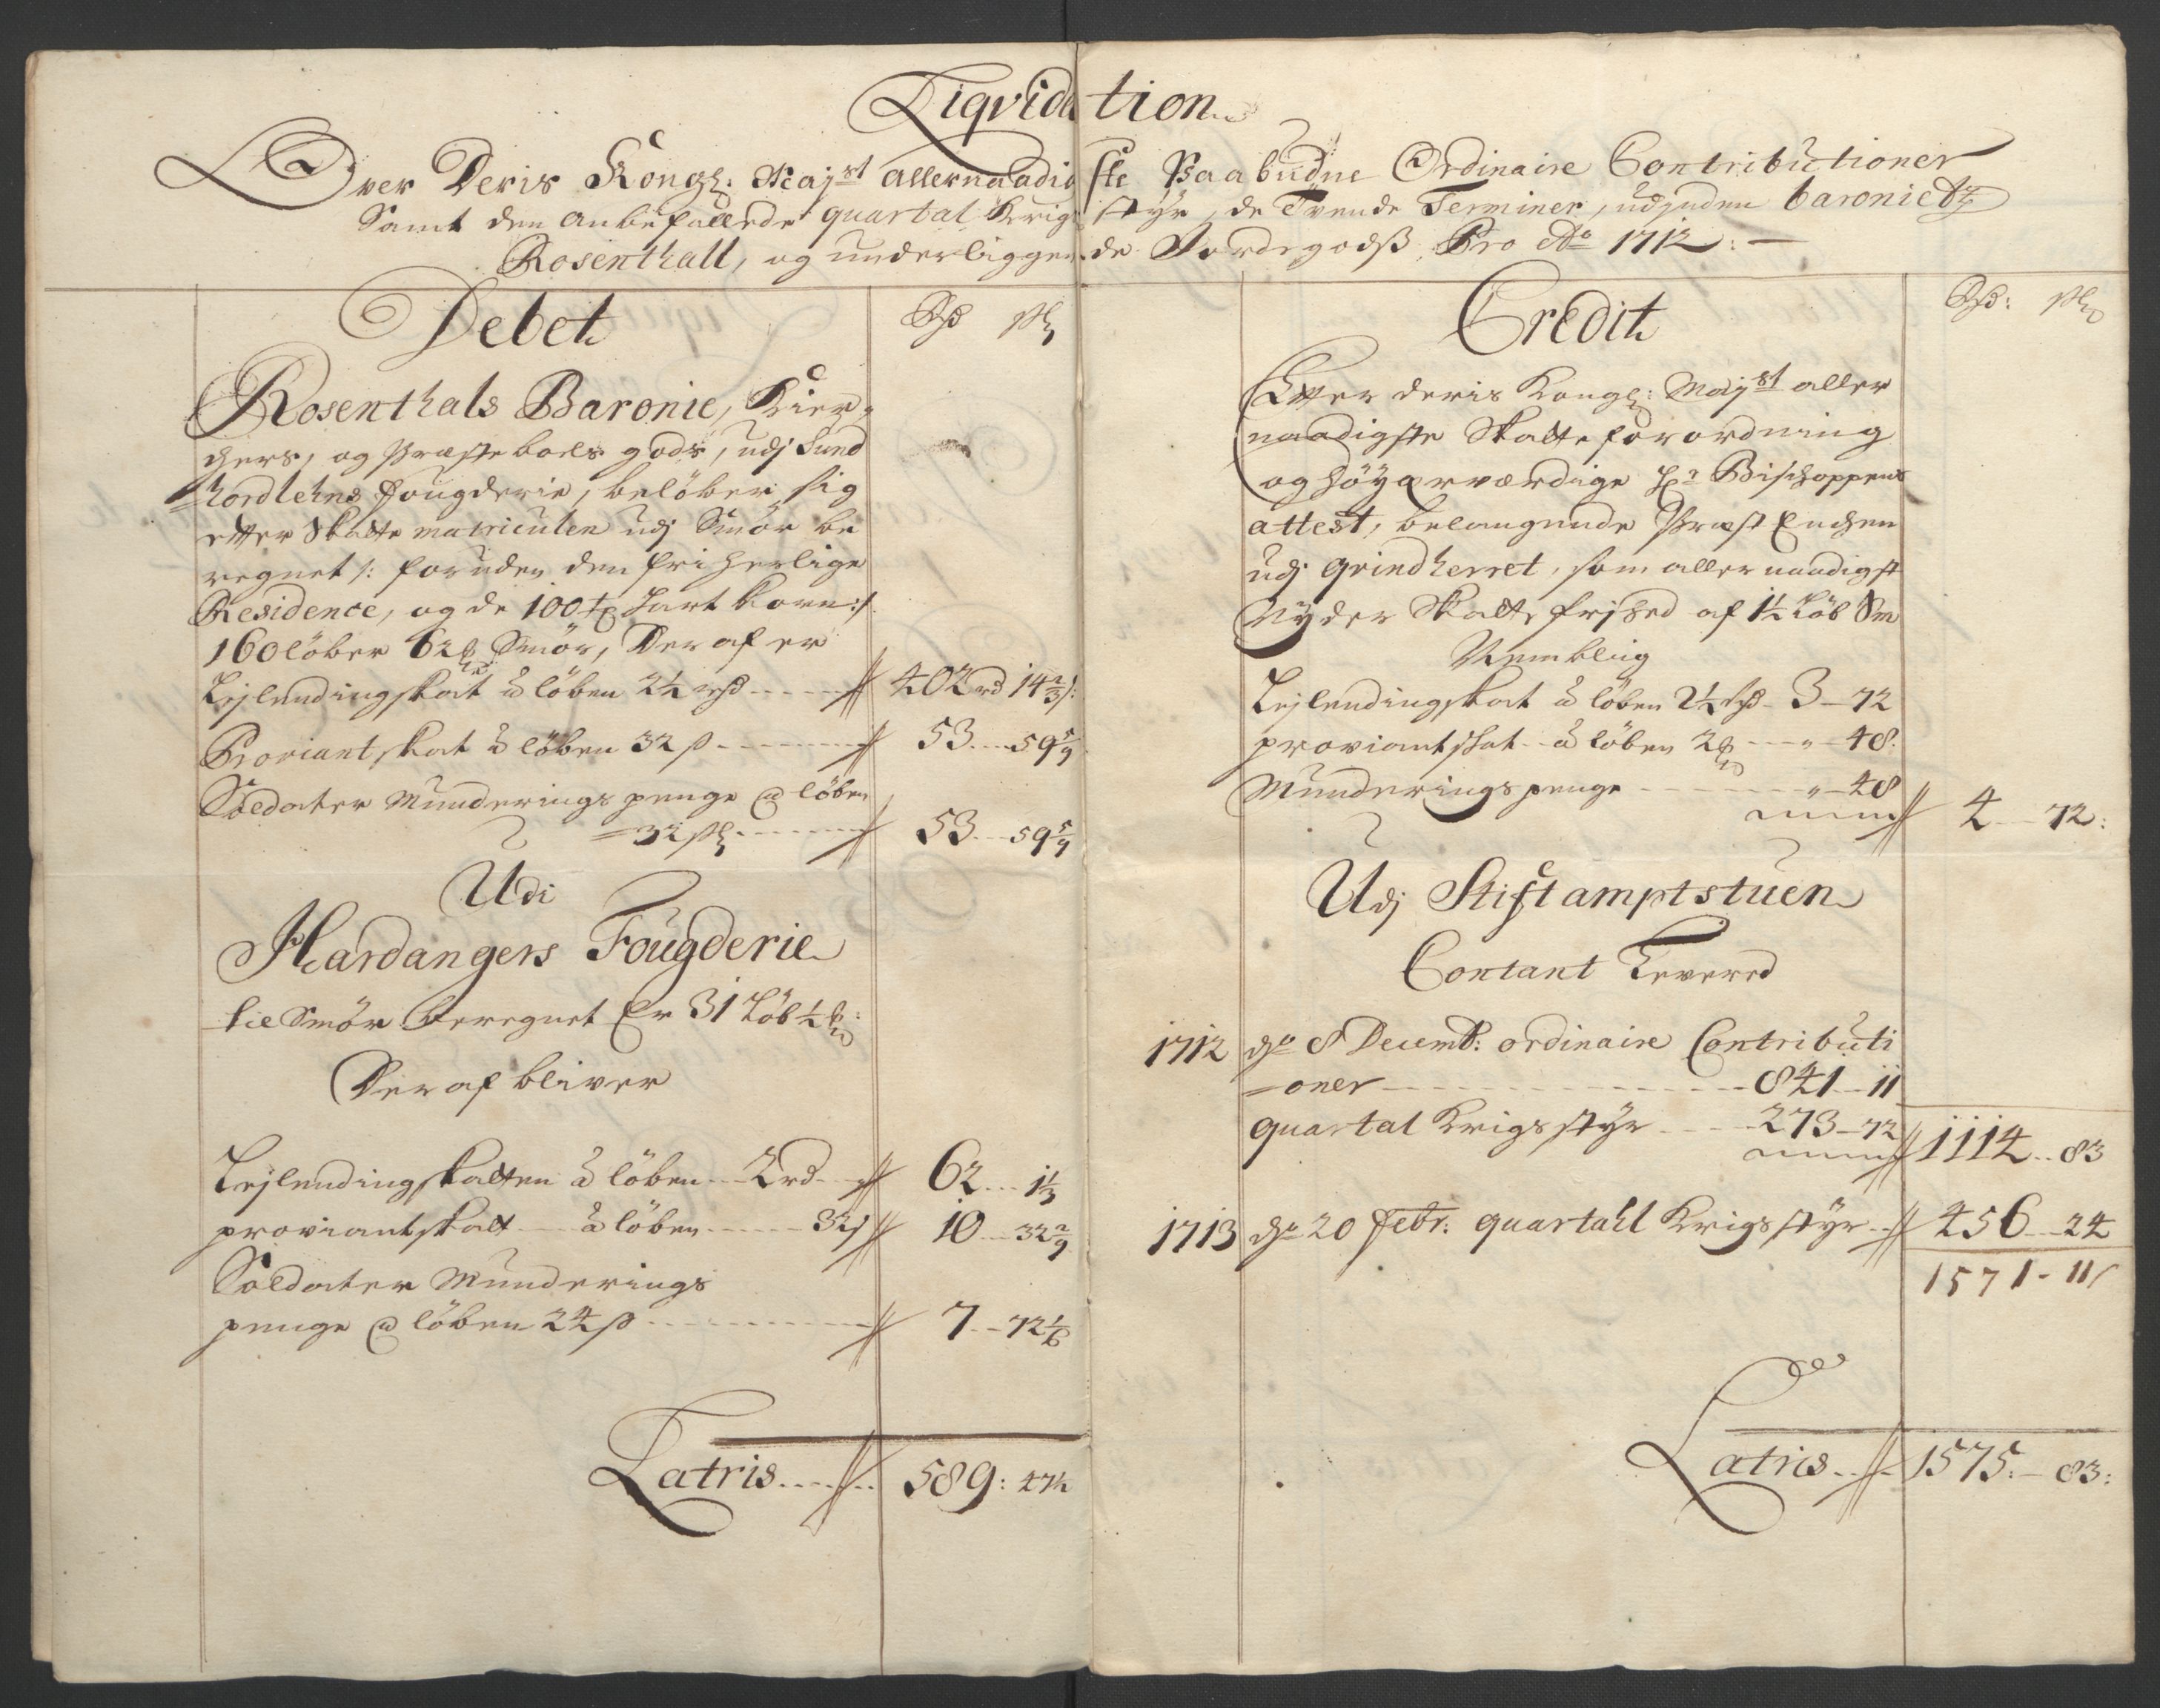 Liqvidation
Over Deris Kongl: Majst allernaadigste Paabudne Ordinaire Contributioner
Samt den anbefallede quartal Krigs styr, de Tvende Terminer, udjnden baroniet
Rosenthall, og underliggende Jordegodß, Pro Ao 1712:
Debet
Rd ß
Rosenthals Baronie, Kier,
chers, og Præsteboels gods, udj Sund
hordlehns fougderie, beløber sig
efter Skatte matriculen udj Smør be
regnet /: foruden den friherlige
Residence, og de 100 tr hart korn :/
160 løber 62 Smør, Deraf er
Lejlendingskat a løben 2½ rd 402 rd 14⅔
Proviantskat a løben 32 ß 53 59 5/9
Soldater Munderings penge a løben
32 ß 53 59 5/9
Udi
Hardangers Fougderie
til Smør beregnet Er 31 Løb ½
Deraf bliver
Lejlendingskatten a løben 2 rd 62 1⅓
proviantskatt a løben 32 ß 10 32 2/9
Soldater Munderings
penge a løben 24 ß 7 72 1/6
Latris 589: 47½
Credit
Rd: ß
Efter deris Kongl: Majst aller
naadigste Skatte forordning
og høyærværdige Hr Bischoppens
attest, belangende Præst Enchen
udj Grindherret, som allernaadigst
Nyder Skatte frihed af 1½ Løb Sm
Nemblig
Lejlendingskat a løben 2½ rd 3 72
proviantskat a løben 48
Munderingspenge 48
4 72:
Udj Stiftamptstuen
Contant Levered
1712 dn 8 Decemb: ordinaire Contributi
oner 841 11
quartal Krigsstyr 273 72
1114 83
1713 dn 20 febr: quartahl Krigsstyr 456 24
1571 11
Latris 1575: 83: